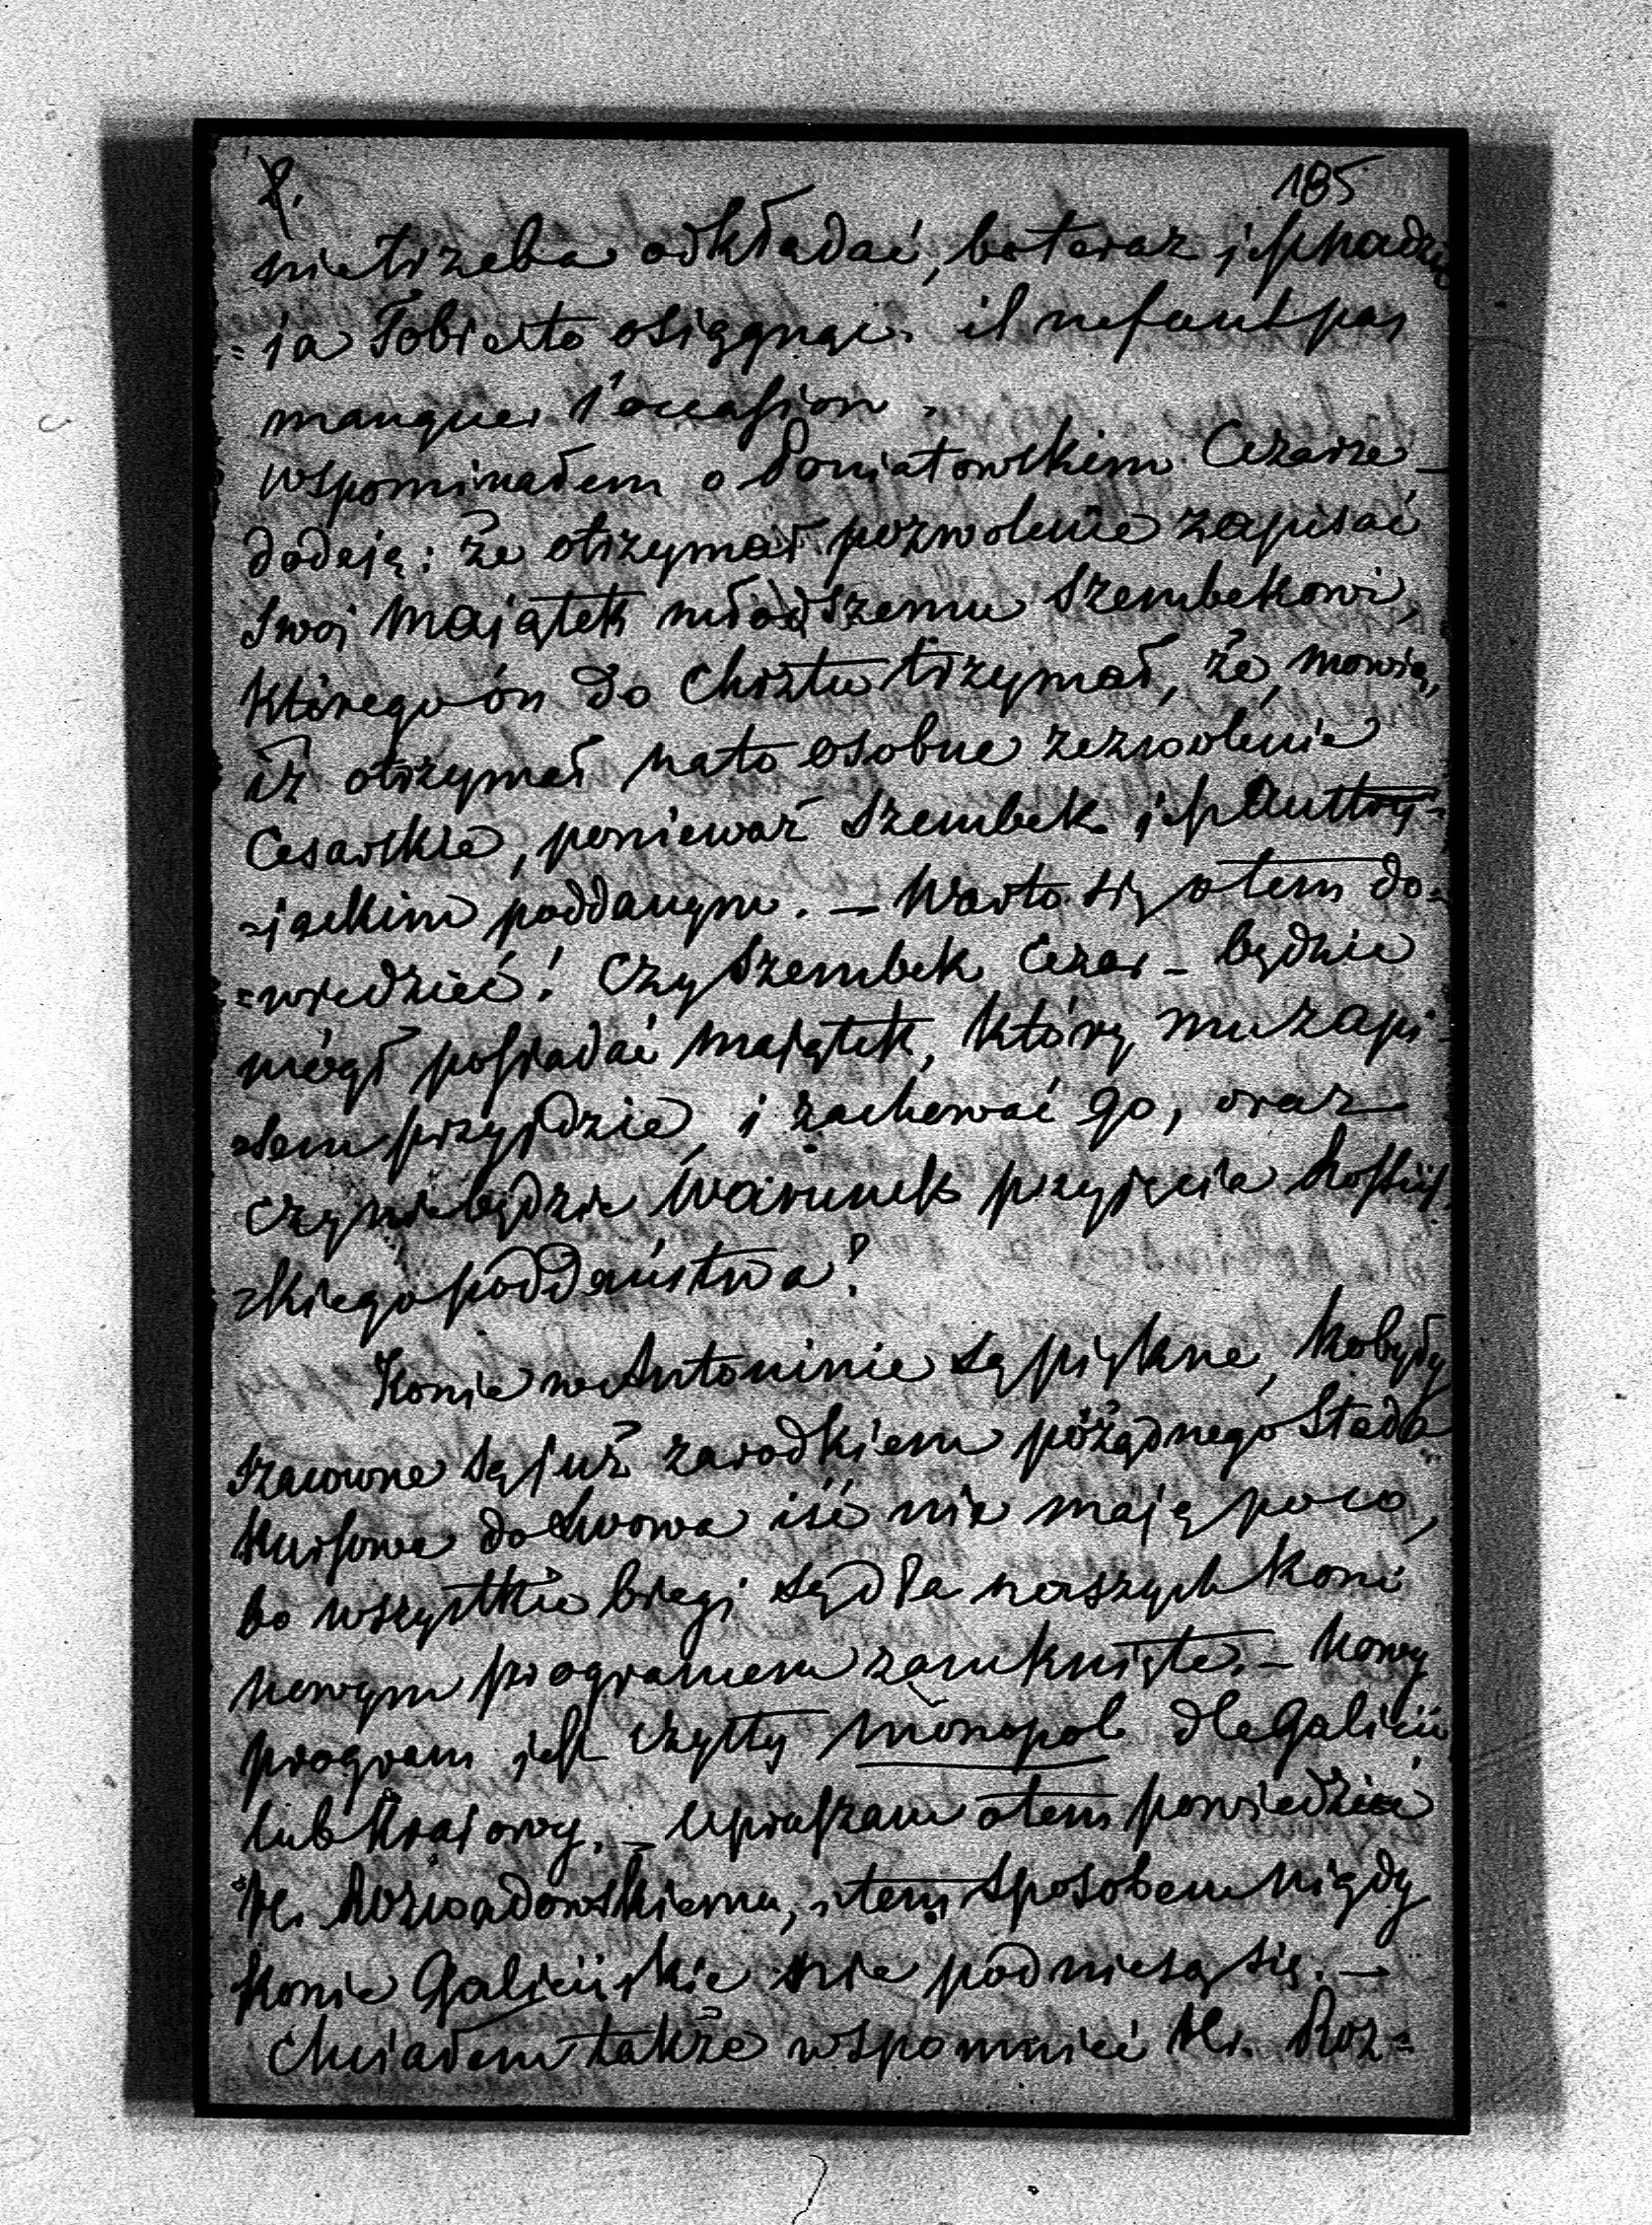 2. 185
nietrzeba odkładać, bo teraz jest nadzie
=ja Tobie to osiągnąć. il ne faut pas
manquer l'occasion.
Wspominałem o Poniatowskim Cezarze –
dodają: że otrzymał pozwolenie zapisać
swoj majątek młodszemu Szembekowi,
którego ón do Chrztu trzymał, że, mowią,
iż otrzymał na to osobne zezwolenie
Cesarskie, ponieważ Szembek jest Austry-
=jackim poddanym. – Warto się o tem do=
=wiedzieć! Czy Szembek Cezar – będzie
mógł posiadać majątek, który mu zapi-
=sem przyjdzie, i zachować go, oraz
czy nie będzie Warunek przyjęcia Rossyj
=skiego poddaństwa?
Konie w Antoninie są piękne, kobyły
szacowne są już zarodkiem porządnego Stada
Kursowe do Lwowa iść nie mają poco,
bo wszystkie biegi są dla naszych koni
nowym programem zamknięte. – Nowy
program jest czysty monopol dla Galicii
lub krajowy. – Upraszam o tem powiedzieć
Hr. Rozwadowskiemu, tem sposobem nigdy
Konie Galicijskie nie podniesą się. –
Chciałem także wspomnieć Hr. Roz=